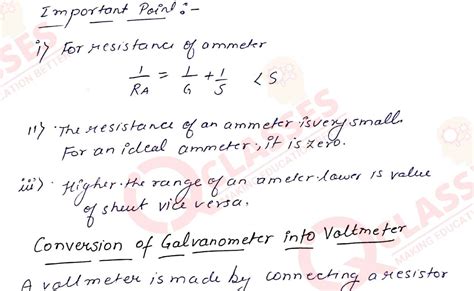 Important Point :-
i) For resistance of ammeter
1/RA = 1/G + 1/S < S
ii) The resistance of an ammeter is very small.
For an ideal ammeter, it is zero.
iii) Higher the range of an ameter lower is value
of shunt vice versa.
Conversion of Galvanometer into Voltmeter
A voltmeter is made by connecting a resistor
CLASSES
MAKING EDUCATION